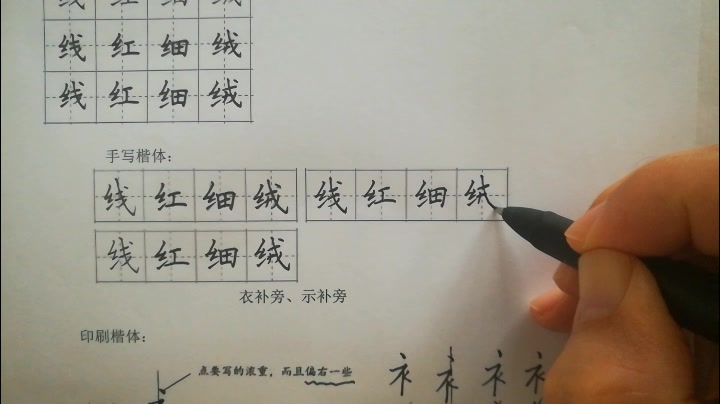 线 红 细 绒
线 红 细 绒
线 红 细 绒
手写楷体:
线 红 细 绒 线 红 细
线 红 细 绒
衣补旁、示补旁
印刷楷体:
点要写的浓重，而且偏右一些
衤 衤 衤 衤